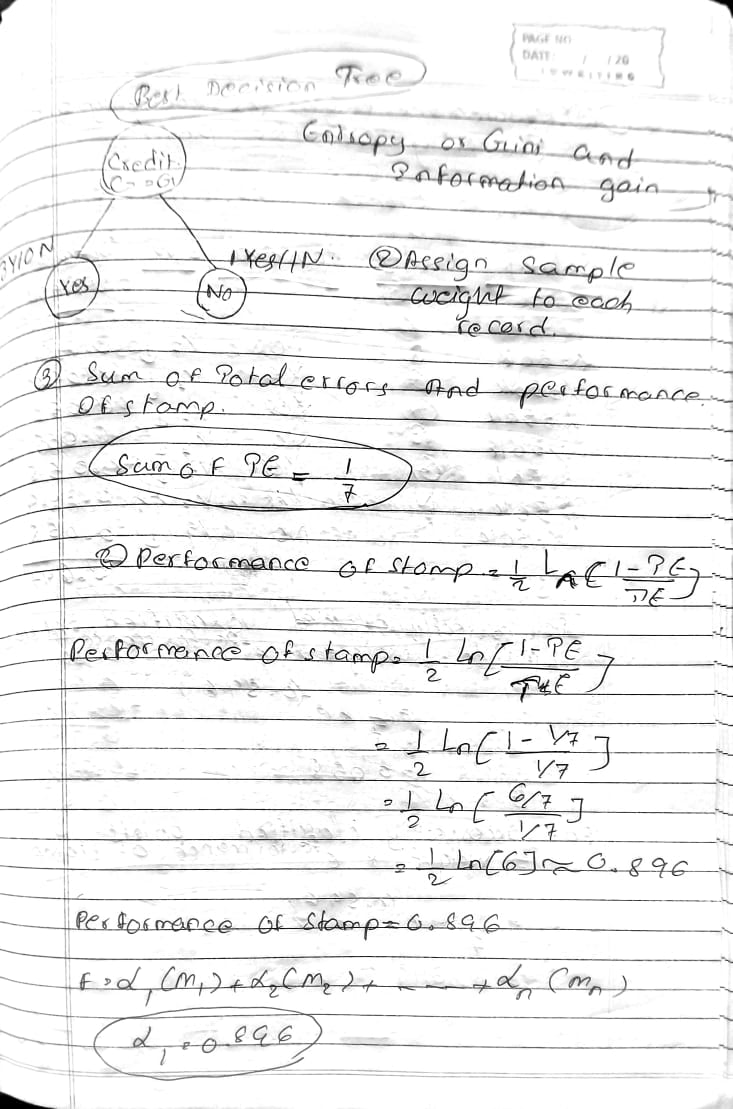 PAGE NO
DATE: / /20
Best Decision Tree
Entropy or Gini and
Information gain
Credit
C->G
Yes
No
1 Yes/1N.
② Assign sample
weight to each
record.
③ Sum of Total errors And performance
Of stamp.
Sum of TE = 1/7
② Performance of stamp = 1/2 Ln[1-TE/TE]
Performance of stamp = 1/2 Ln[1-TE/TE]
= 1/2 Ln[1-1/7 / 1/7]
= 1/2 Ln[6/7 / 1/7]
= 1/2 Ln[6] ≈ 0.896
Performance of stamp = 0.896
F = α₁(M₁) + α₂(M₂) + ---- + αₙ(Mₙ)
α₁ = 0.896